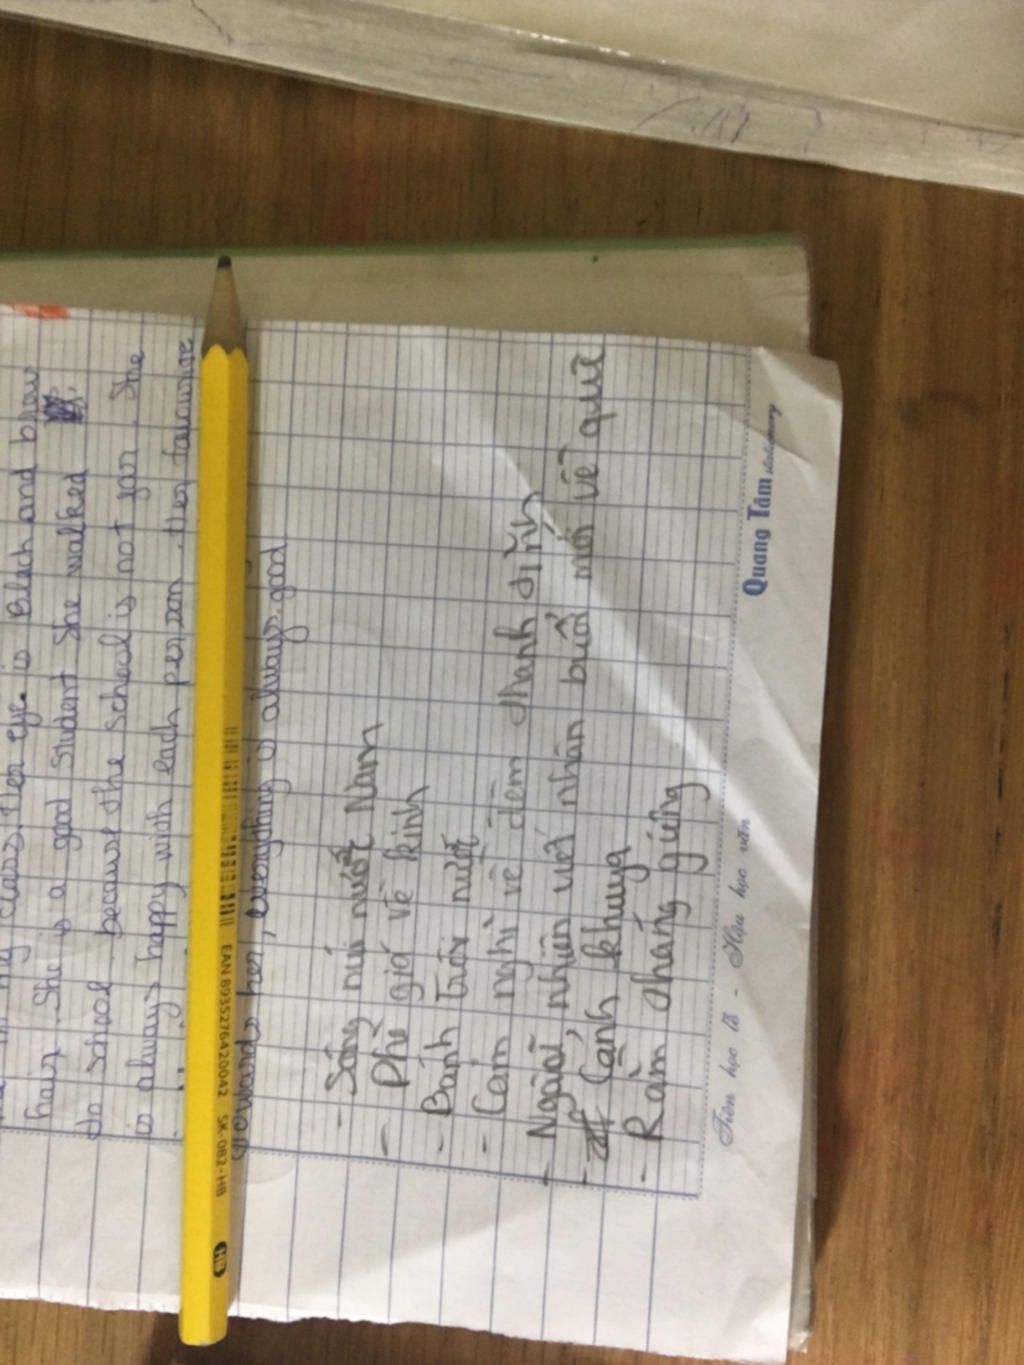 my class. Her eye is Black and brow
hair. She is a good student. She walked
to school because the school is not far. She
is always happy with each person. Her favourite
towards her, everything is always good
- Sông núi nước Nam
- Phò giá về kinh
- Bánh trôi nước
- Cảm nghĩ về đêm thanh tĩnh
- Ngẫu nhiên viết nhân buổi mới về quê
- Cảnh khuya
- Rằm tháng giêng
Quang Tâm stationery
Tiên học lễ - Hậu học văn
EAN 8935276420042 SK-082-HB
HB